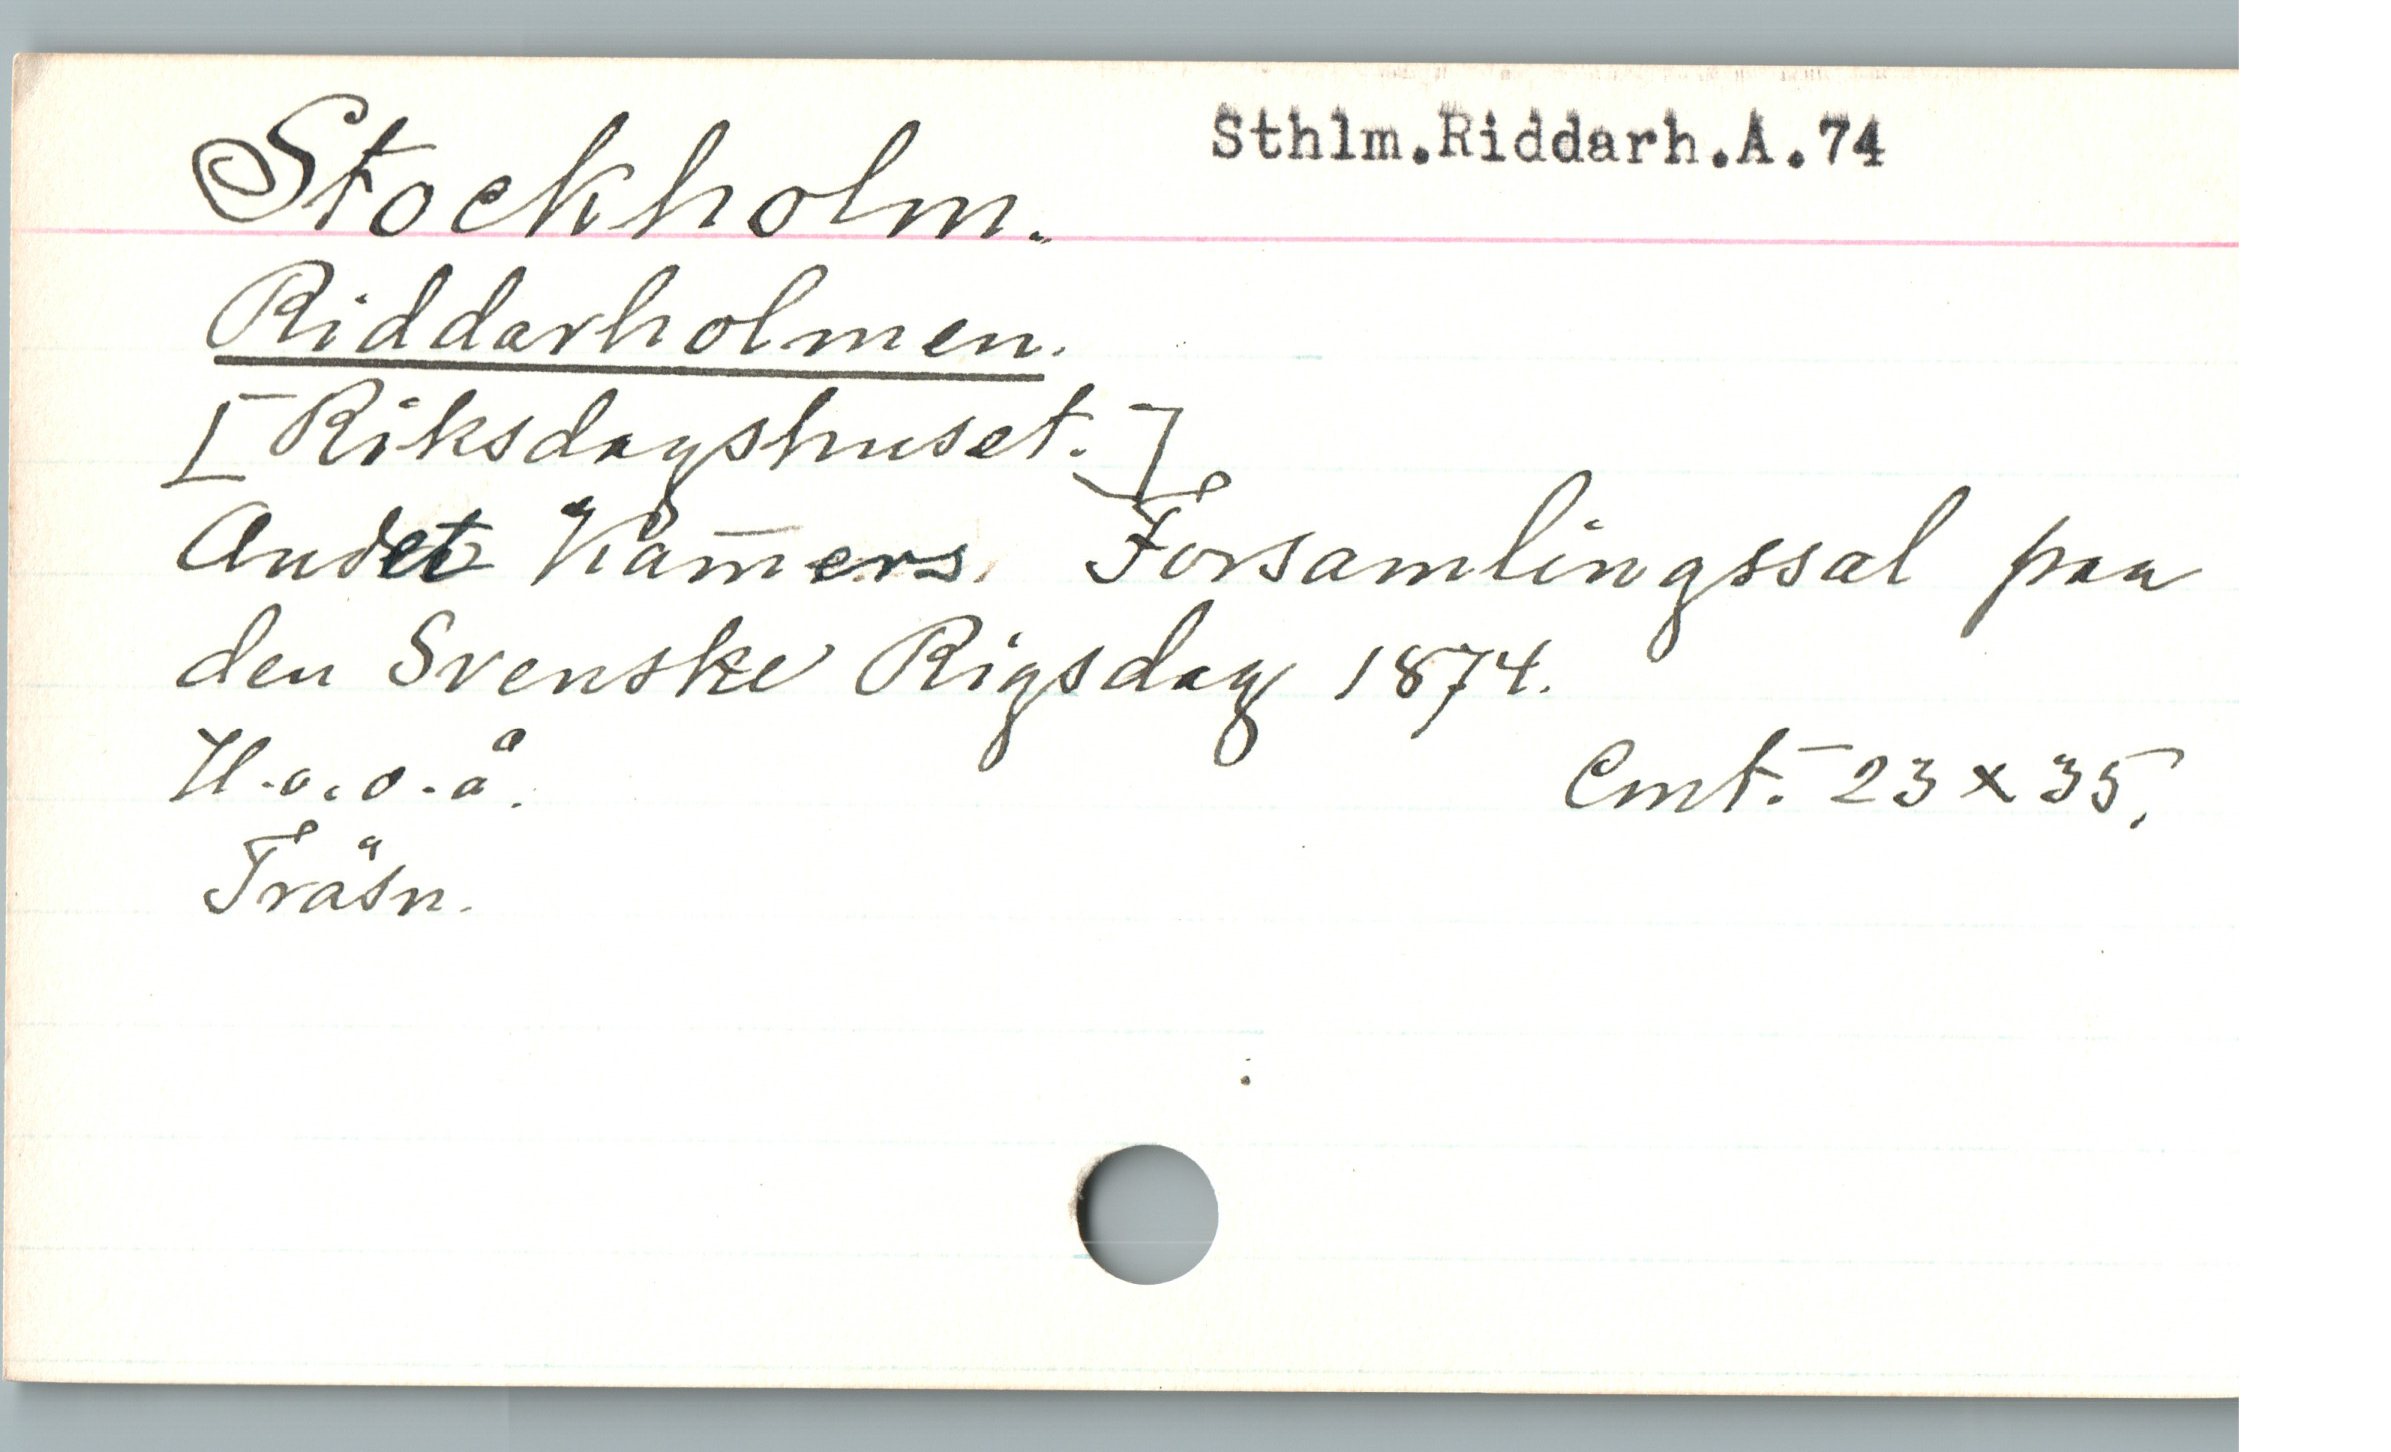 Stockholm.
Sthlm.Riddarh.A.74
Riddarholmen.
[Riksdagshuset.]
Andet Kam̄ers Forsamlingssal paa
den Svenske Rigsdag 1874.
U.o.o.å.
Cmt. 23 x 35.
Träsn.